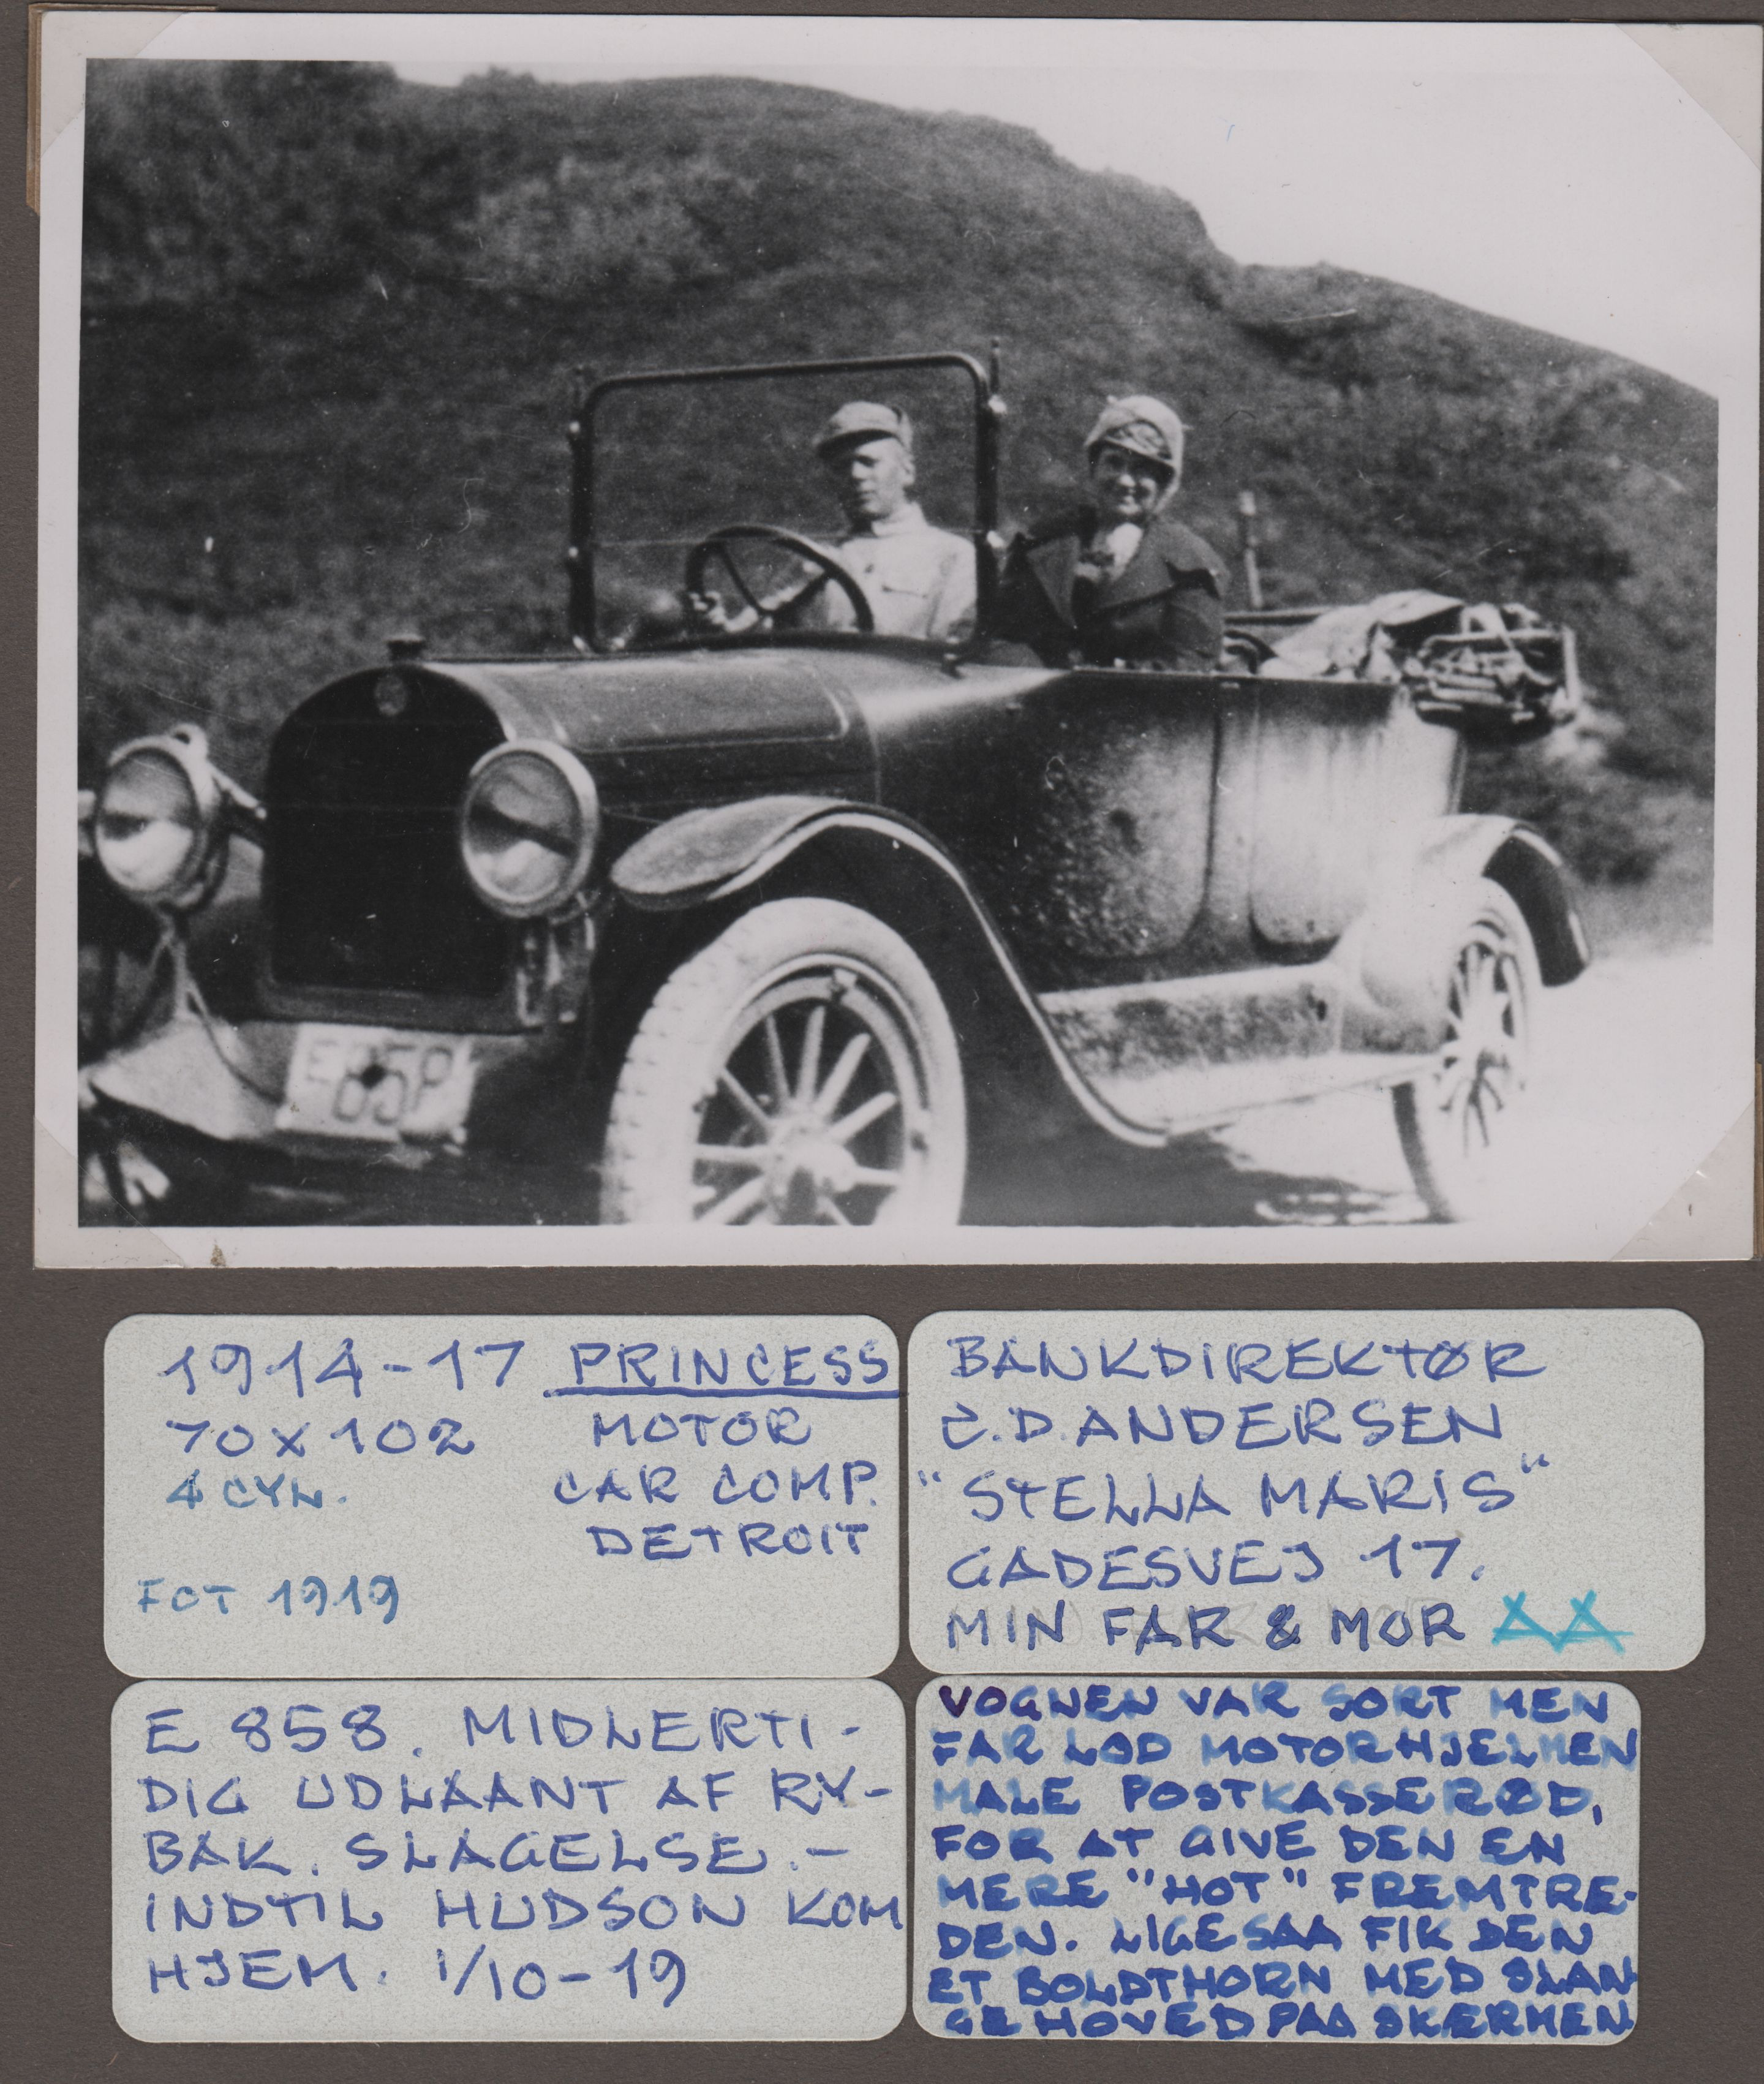 E 85P
1914-17 PRINCESS
70X102 MOTOR
4 CYL. CAR COMP.
DETROIT
FOT 1919
BANKDIREKTØR
C.D. ANDERSEN
"STELLA MARIS"
GADESVEJ 17.
MIN FAR & MOR AA
E 858. MIDLERTI-
DIG UDLAANT AF RY-
BAK. SLAGELSE.-
INDTIL HUDSON KOM
HJEM. 1/10-19
VOGNEN VAR SORT MEN
FAR LOD MOTORHJELMEN
MALE POSTKASSERØD,
FOR AT GIVE DEN EN
MERE "HOT" FREMTRE-
DEN. LIGESAA FIK DEN
ET BOLDTHORN MED SLAN-
GEHOVED PAA SKÆRMEN